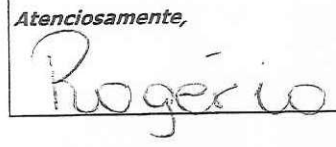 Atenciosamente,
Rogério